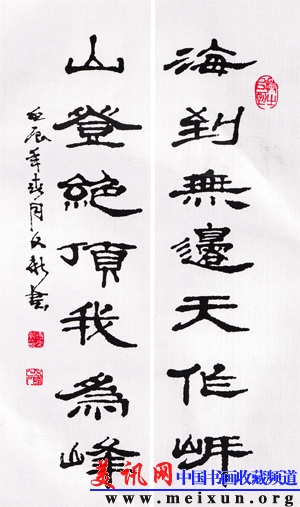 海到無邊天作岸
山登絕頂我為峰
壬辰年春月文書
美讯网
中国书画收藏频道
www.meixun.org